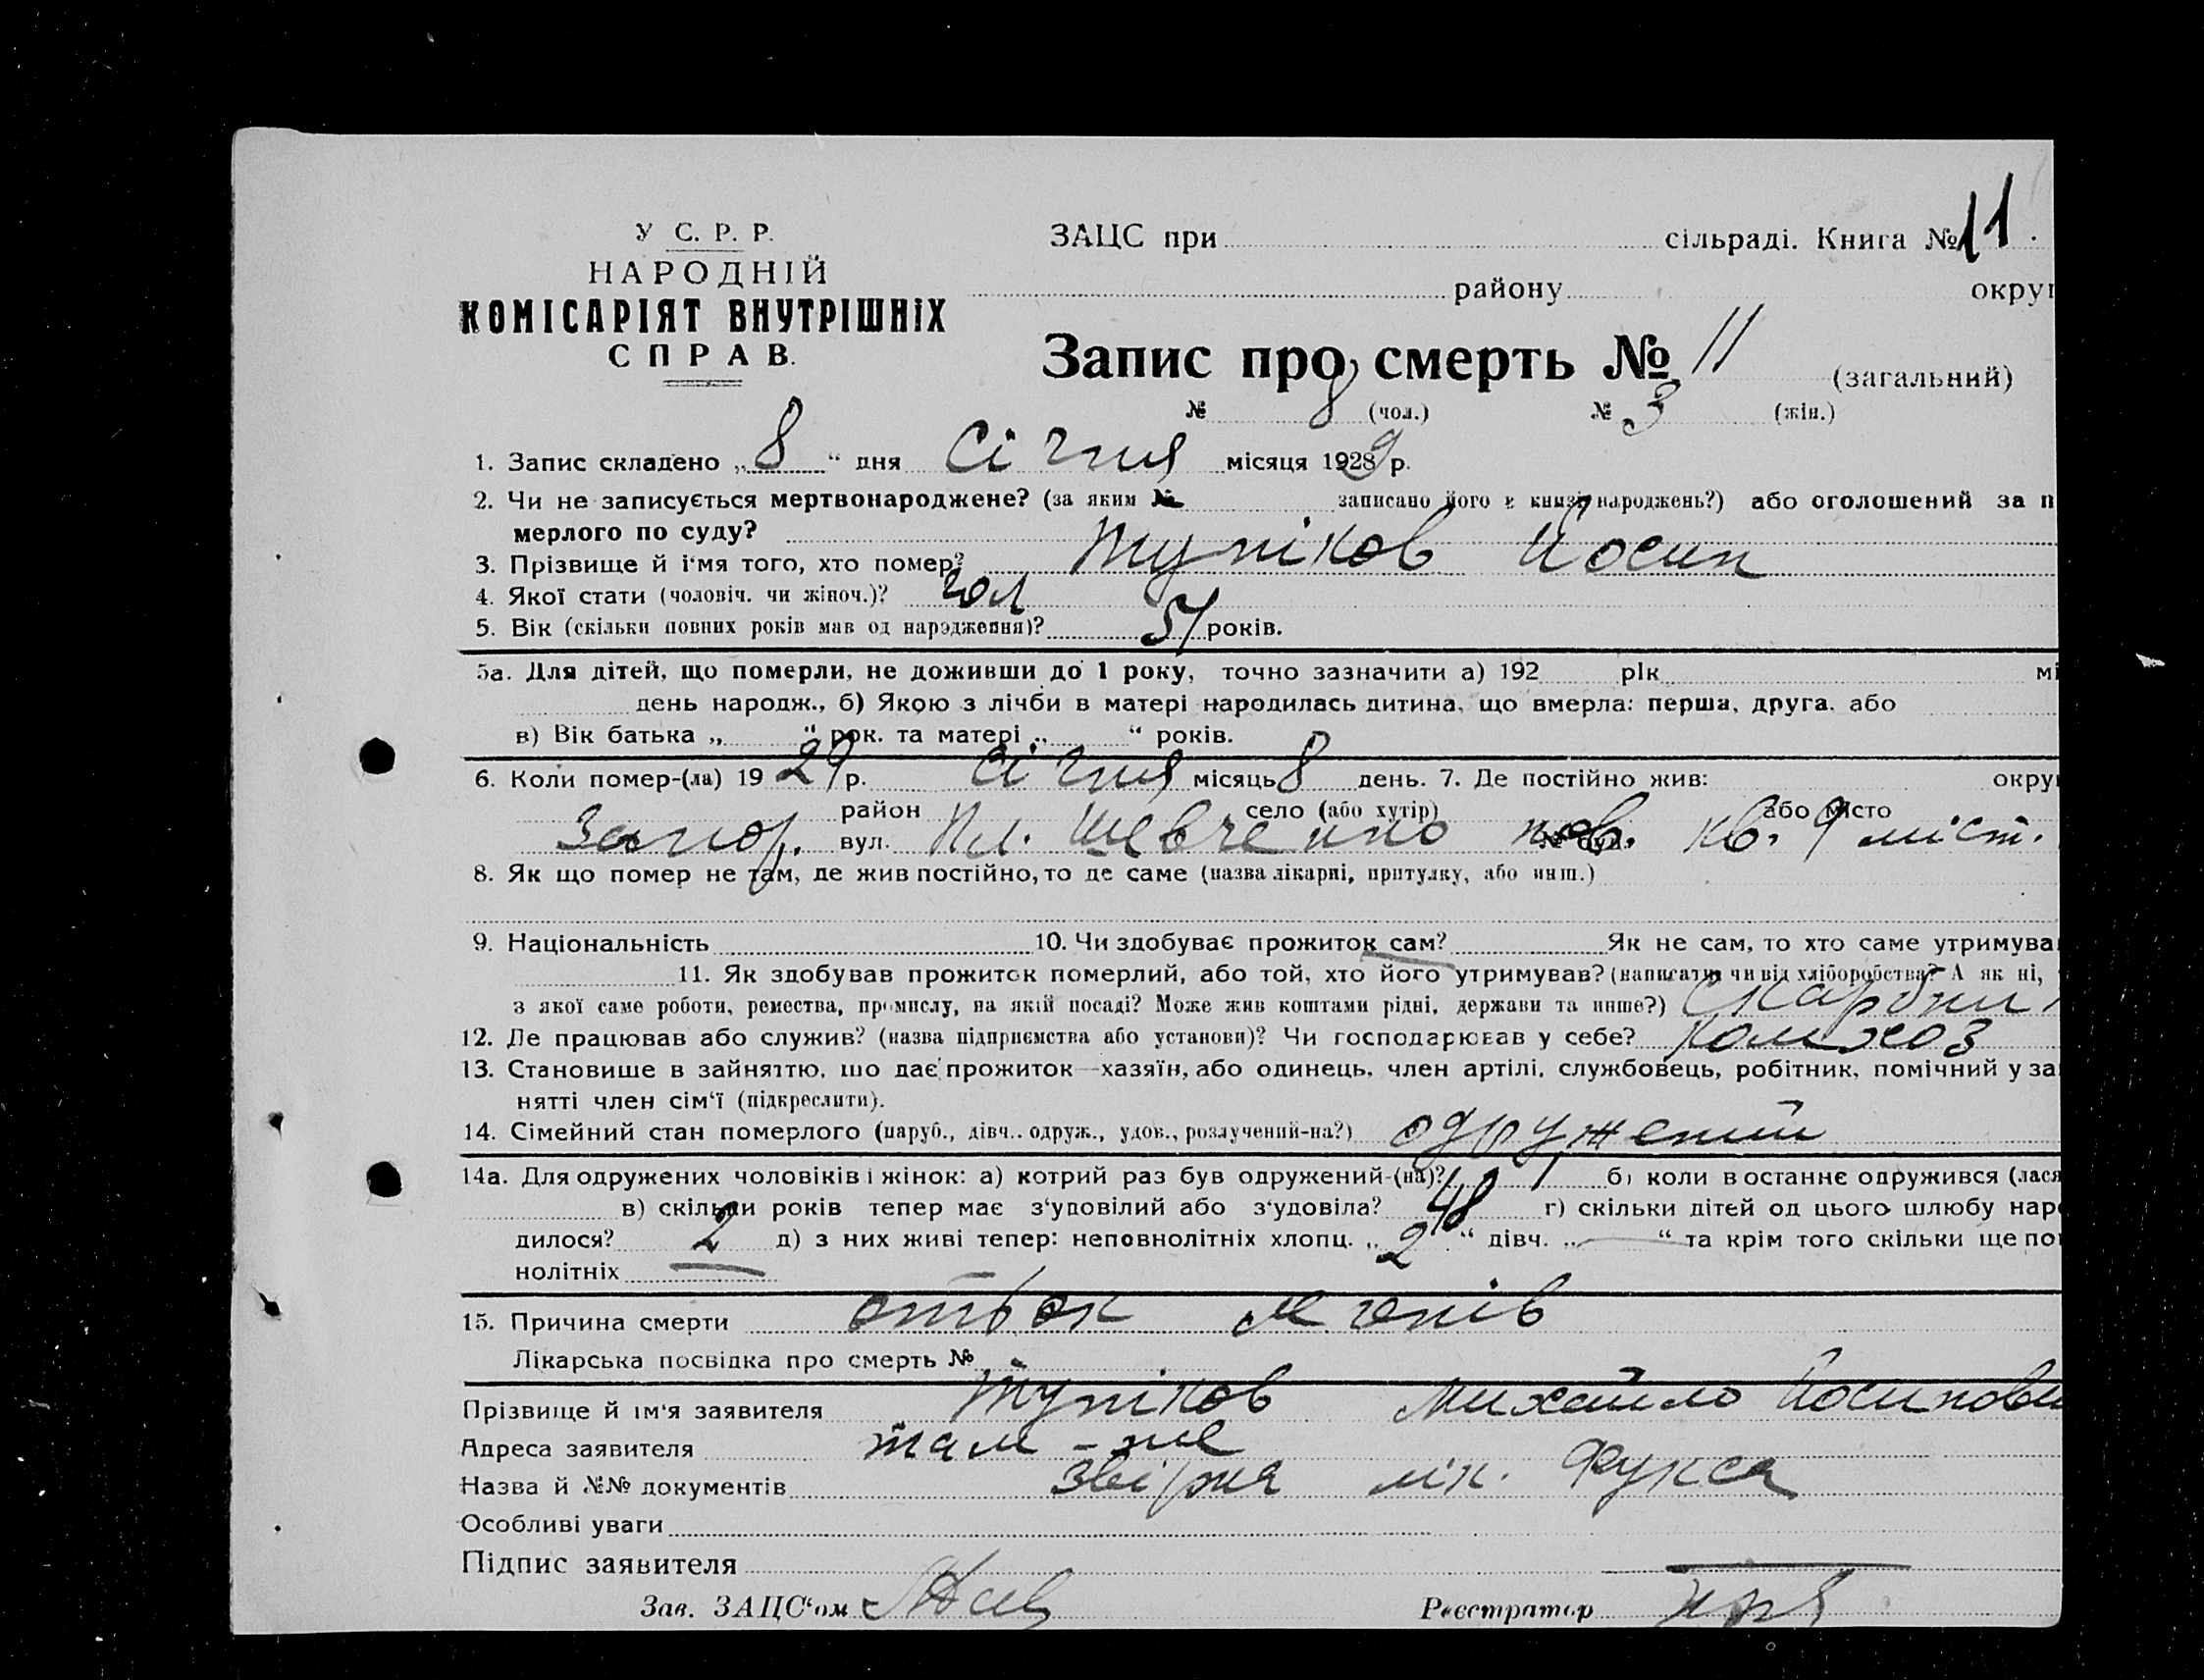 У С. Р. Р.
НАРОДНІЙ
КОМІСАРІЯТ ВНУТРІШНІХ
СПРАВ.
ЗАЦС при сільраді. Книга № 11.
району окру
Запис про смерть № 11 (загальний)
№ 8 (чол.) № 3 (жін.)
1. Запис складено „8“ дня Січня місяця 1929 р.
2. Чи не записується мертвонароджене? (за яким № записано його в книзі народжень?) або оголошений за п
мерлого по суду?
3. Прізвище й і'мя того, хто помер? Тупіков Йосип
4. Якої стати (чоловіч. чи жіноч.)? чол
5. Вік (скільки повних років мав од народження)? 51 років.
5а. Для дітей, що померли, не доживши до 1 року, точно зазначити а) 192 рік мі
день народж., б) Якою з лічби в матері народилась дитина, що вмерла: перша, друга, або
в) Вік батька „ “ рок. та матері „ “ років.
6. Коли помер-(ла) 1929 р. Січня місяць 8 день. 7. Де постійно жив: окру
район село (або хутір) або місто
Запор. вул. Пл. Шевченко № буд. кв. 9 міст.
8. Як що помер не там, де жив постійно, то де саме (назва лікарні, притулку, або инш.)
9. Національність 10. Чи здобуває прожиток сам? Як не сам, то хто саме утримува
11. Як здобував прожиток померлий, або той, хто його утримував? (написати чи від хліборобства? А як ні,
з якої саме роботи, ремества, промислу, на якій посаді? Може жив коштами рідні, держави та инше?) Скарбни
12. Де працював або служив? (назва підприємства або установи)? Чи господарював у себе? Комхоз
13. Становище в зайняттю, що дає прожиток—хазяїн, або одинець, член артілі, службовець, робітник, помічний у за
нятті член сім'ї (підкреслити).
14. Сімейний стан померлого (паруб., дівч.. одруж., удов., розлучений-на?) одружений
14а. Для одружених чоловіків і жінок: а) котрий раз був одружений-(на)? 1 б) коли востаннє одружився (лася
в) скільки років тепер має з'удовілий або з'удовіла? 48 г) скільки дітей од цього шлюбу нар
дилося? 2 д) з них живі тепер: неповнолітніх хлопц. „2“ дівч. „—“ та крім того скільки ще по
нолітніх —
15. Причина смерти отьок легенів
Лікарська посвідка про смерть №
Прізвище й ім'я заявителя Тупіков Михайло Йосипови
Адреса заявителя там-же
Назва й №№ документів лік. Фукса
Особливі уваги
Підпис заявителя
Зав. ЗАЦС'ом Реєстратор